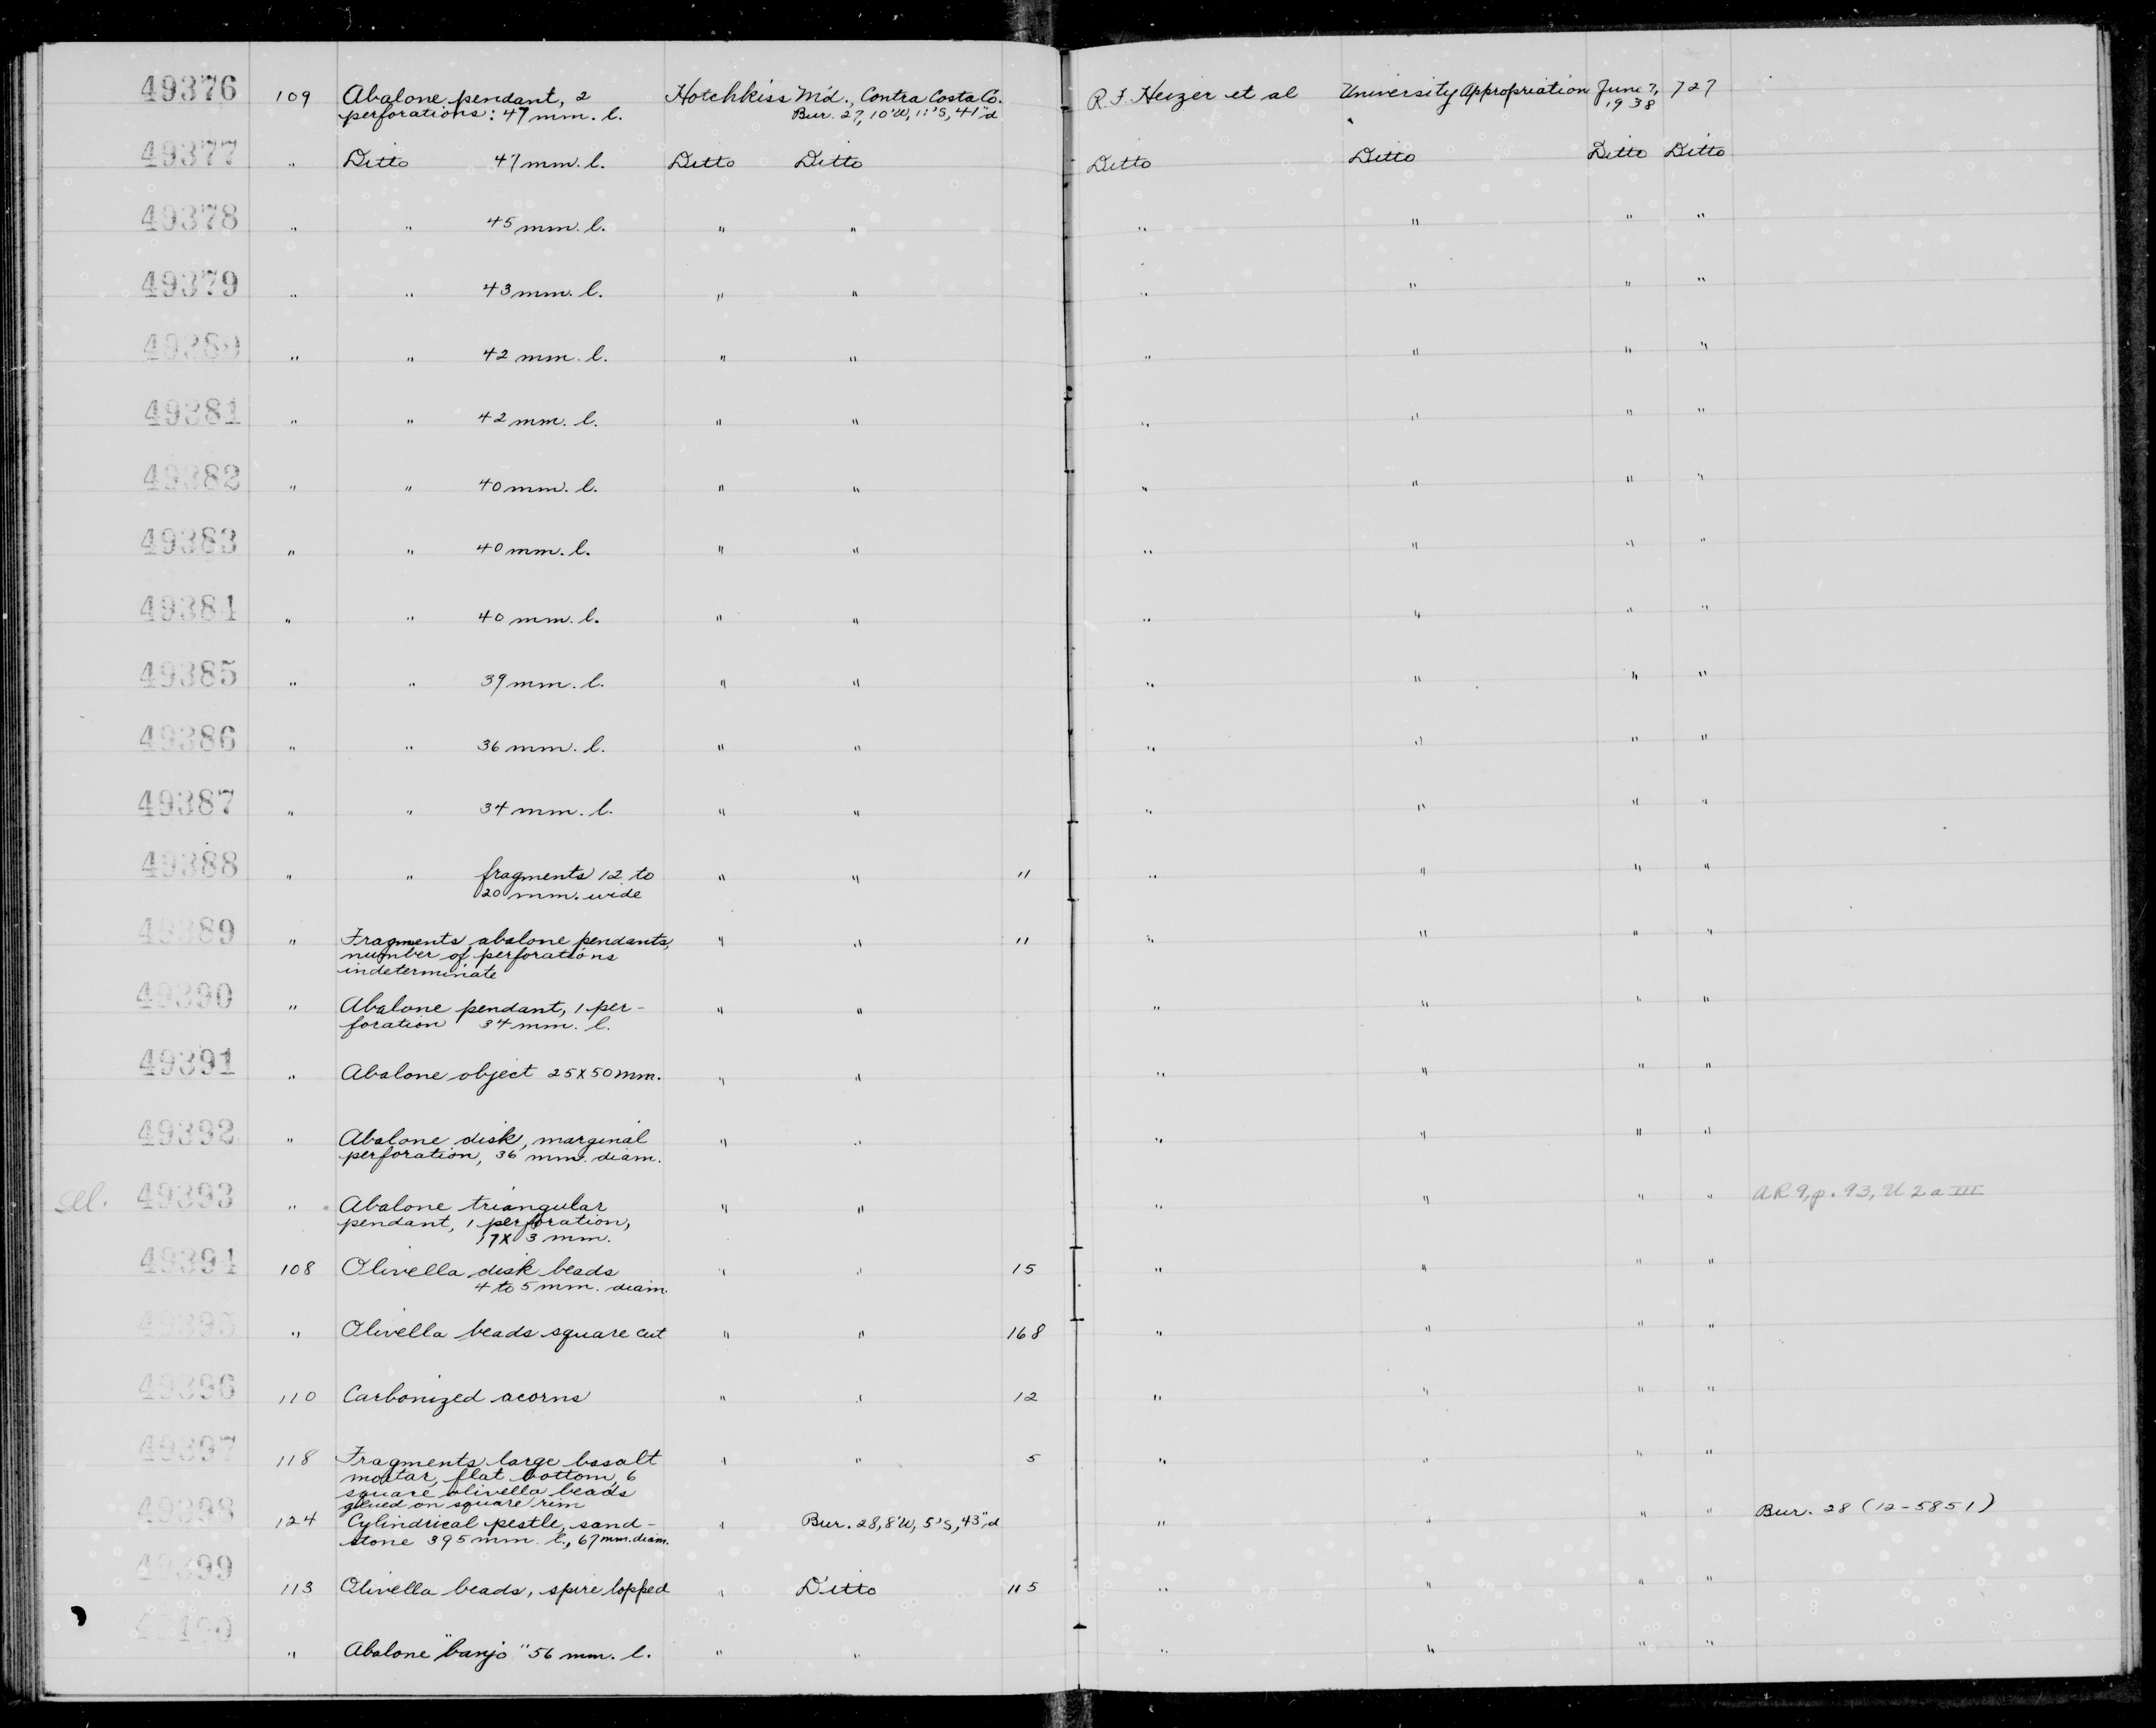 49376 109 Abalone pendant, 2 Hotchkiss M'd., Contra Costa Co. R. F. Heizer et al University Appropriation June 7, 727
perforations: 47 mm. l. Bur. 27, 10'W, 11'S, 41"d 1938
49377 " Ditto 47 mm. l. Ditto Ditto Ditto Ditto Ditto Ditto
49378 " " 45 mm. l. " " " " " "
49379 " " 43 mm. l. " " " " " "
49380 " " 42 mm. l. " " " " " "
49381 " " 42 mm. l. " " " " " "
49382 " " 40 mm. l. " " " " " "
49383 " " 40 mm. l. " " " " " "
49384 " " 40 mm. l. " " " " " "
49385 " " 39 mm. l. " " " " " "
49386 " " 36 mm. l. " " " " " "
49387 " " 34 mm. l. " " " " " "
49388 " " fragments 12 to " " 11 " " " "
20 mm. wide
49389 " Fragments abalone pendants, " " 11 " " " "
number of perforations
indeterminate
49390 " Abalone pendant, 1 per- " " " " " "
foration 34 mm. l.
49391 " Abalone object 25 x 50 mm. " " " " " "
49392 " Abalone disk, marginal " " " " " "
perforation, 36 mm. diam.
sel. 49393 " Abalone triangular " " " " " " AR 9, p. 93, U 2 a III
pendant, 1 perforation,
17 x 3 mm.
49394 108 Olivella disk beads " " 15 " " " "
4 to 5 mm. diam.
49395 " Olivella beads square cut " " 168 " " " "
49396 110 Carbonized acorns " " 12 " " " "
49397 118 Fragments large basalt " " 5 " " " "
mortar, flat bottom, 6
square olivella beads
glued on square rim
49398 124 Cylindrical pestle, sand- " Bur. 28, 8'W, 5'S, 43"d " " " " Bur. 28 (12-5851)
stone 395 mm. l., 67 mm. diam.
49399 113 Olivella beads, spire lopped " Ditto 115 " " " "
49400 " Abalone "banjo" 56 mm. l. " " " " " "